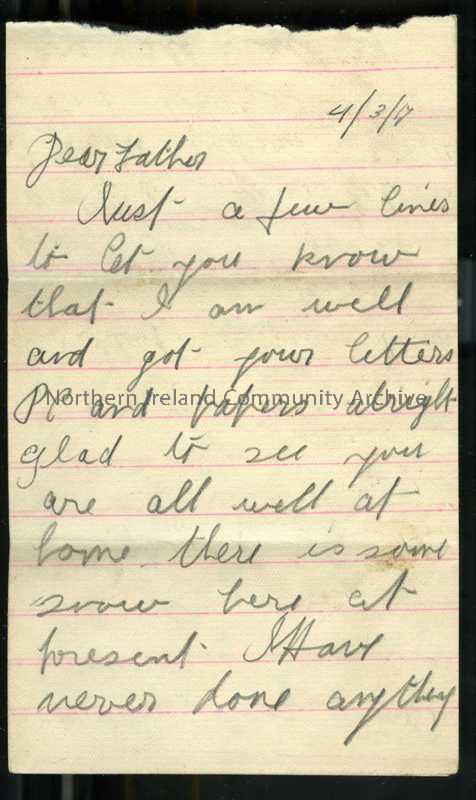 4/3/17
Dear Father
Just a few lines
to let you know
that I am well
and got your letters
Northern Ireland Community Archive
and papers alright
glad to see you
are all well at
home there is some
snow here at
present I Have
never done anything